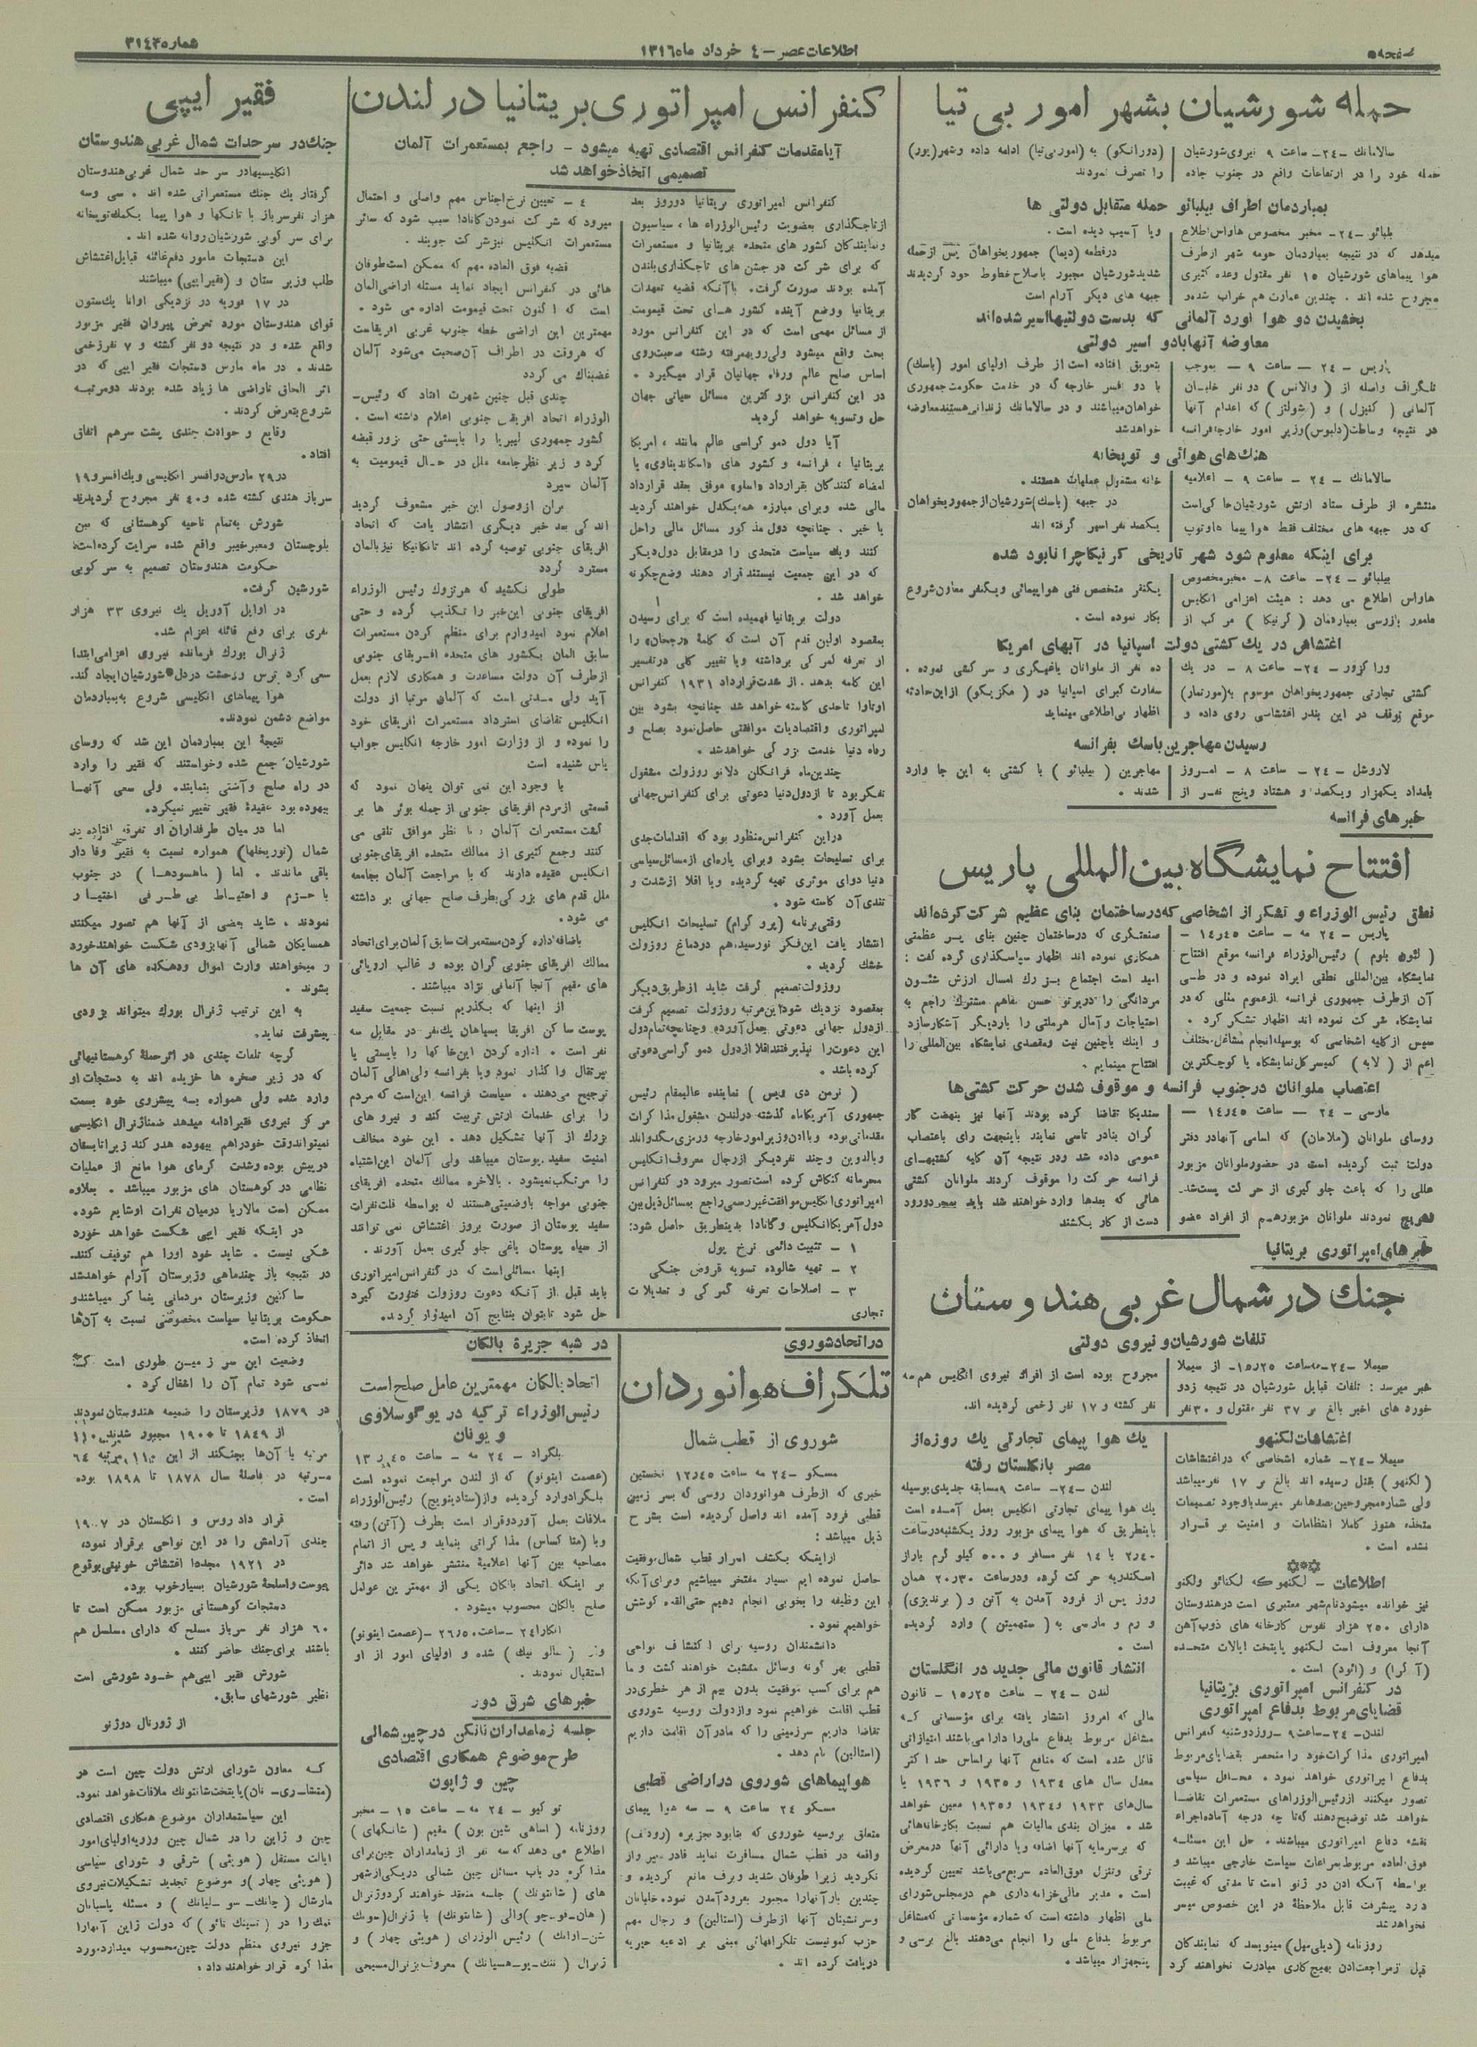 صفحه ٥
اطلاعات عصر – ٤ خرداد ماه ١٣١٦
شماره ٣١٤٣
حمله شورشیان بشهر امور بی تیا
سالامانك -٢٤- ساعت ٩ نیروی شورشیان
حمله خود را در ارتفاعات واقع در جنوب جاده
(دورانكو) به (اموربی‌تیا) ادامه داده وشهر(یور)
را تصرف نمودند
بمباردمان اطراف بیلبائو حمله متقابل دولتی ها
بلبائو -٢٤- مخبر مخصوص هاواس اطلاع
میدهد که در نتیجه بمباردمان حومه شهر ازطرف
هوا پیماهای شورشیان ١٥ نفر مقتول وعده کثیری
مجروح شده اند . چندین عمارت هم خراب شده
ویا آسیب دیده است .
درقطعه (دیما) جمهوریخواهان پس ازحمله
شدید شورشیان مجبور باصلاح خطوط خود گردیدند
جبهه های دیگر آرام است
بخشیدن دو هوا نورد آلمانی که بدست دولتیها اسیر شده‌اند
معاوضه آنها بادو اسیر دولتی
پاریس - ٢٤ - ساعت ٩ - بموجب
تلگراف واصله از ( والانس ) دو نفر خلبان
آلمانی ( کنیزل ) و ( شولتز ) که اعدام آنها
در نتیجه وساطت(دلبوس)وزیر امور خارجه فرانسه
بتعویق افتاده است از طرف اولیای امور (باسك)
با دو افسر خارجه که در خدمت حکومت جمهوری
خواهان میباشند و در سالامانك زندانی هستند معاوضه
خواهد شد
هنك‌های هوائی و توپخانه
سالامانك - ٢٤ - ساعت ٩ - اعلامیه
منتشره از طرف ستاد ارتش شورشیان حاکی است
که در جبهه های مختلف فقط هوا پیما ها و توپ
خانه مشغول عملیات هستند .
در جبهه (باسك) شورشیان از جمهوریخواهان
یکصد نفر اسیر گرفته اند
برای اینکه معلوم شود شهر تاریخی گرنیکا چرا نابود شده
بیلبائو -٢٤- ساعت ٨- مخبر مخصوص
هاواس اطلاع می دهد : هیئت اعزامی انگلیس
مامور بازرسی بمباردمان ( گرنیکا ) مرکب از
یکنفر متخصص فنی هواپیمائی و یکنفر معاون شروع
بکار نموده است .
اغتشاشی در یك کشتی دولت اسپانیا در آبهای امریکا
ورا کروز - ٢٤- ساعت ٨ - در یك
کشتی تجارتی جمهوریخواهان موسوم به(مورتمار)
موقع توقف در این بندر اغتشاشی روی داده و
ده نفر از ملوانان یاغیگری و سر کشی نموده .
سفارت کبرای اسپانیا در ( مکزیکو) از این حادثه
اظهار بی‌اطلاعی مینماید
رسیدن مهاجرین باسك بفرانسه
لاروشل - ٢٤ - ساعت ٨ - امروز
بامداد یکهزار و یکصد و هشتاد و پنج نفر از
مهاجرین ( بیلبائو ) با کشتی به این جا وارد
شدند .
خبرهای فرانسه
افتتاح نمایشگاه بین المللی پاریس
نطق رئیس الوزراء و تشکر از اشخاصی که در ساختمان بنای عظیم شرکت کرده اند
پاریس - ٢٤ مه - ساعت ١٤٫٤٥ -
( لئون بلوم ) رئیس الوزراء فرانسه موقع افتتاح
نمایشگاه بین‌المللی نطقی ایراد نموده و در طی
آن از طرف جمهوری فرانسه از عموم مللی که در
نمایشگاه شرکت نموده اند اظهار تشکر کرد .
سپس از کلیه اشخاصی که بوسیله انجام مشاغل مختلف
اعم از ( لابه ) کمیسر کل نمایشگاه یا کوچکترین
صنعتگری که در ساختمان چنین بنای پر عظمتی
همکاری نموده اند اظهار سپاسگذاری کرده گفت :
امید است اجتماع بزرك امسال ارزش شئون
مردانگی را در پرتو حسن تفاهم مشترك راجع به
احتیاجات و آمال هر ملتی را بار دیگر آشکار سازد
و اینك با چنین نیت و مقصدی نمایشگاه بین‌المللی را
افتتاح مینمایم .
اعتصاب ملوانان در جنوب فرانسه و موقوف شدن حرکت کشتی‌ها
مارسی - ٢٤ - ساعت ١٤٫٤٥ -
روسای ملوانان (ملاحان) که اسامی آنها در دفتر
دولت ثبت گردیده است در حضور ملوانان مزبور
عللی را که باعث جلو گیری از حرکت پست شد
تشریح نمودند ملوانان مزبور هم از افراد عضو
سندیکا تقاضا کرده بودند آنها نیز بنهضت کار
گران بنادر تاسی نمایند باینجهت رای باعتصاب
عمومی داده شد و در نتیجه آن کلیه کشتیهای
فرانسه حرکت را موقوف کردند ملوانان کشتی
هائی که بعدها وارد خواهند شد باید بمجرد ورود
دست از کار بکشند
خبرهای امپراتوری بریتانیا
جنك در شمال غربی هندوستان
تلفات شورشیان و نیروی دولتی
سیملا -٢٤-مه ساعت ١٥٫٢٥- از سیملا
خبر میرسد : تلفات قبایل شورشیان در نتیجه زدو
خورد های اخیر بالغ بر ٣٧ نفر مقتول و ٣٠ نفر
مجروح بوده است از افراد نیروی انگلیس هم سه
نفر کشته و ١٧ نفر زخمی گردیده اند.
اغتشاشات لکنهو
سیملا -٢٤- شماره اشخاصی که در اغتشاشات
(لکنهو) بقتل رسیده اند بالغ بر ١٧ نفر میباشد
ولی شماره مجروحین بصدها نفر میرسد باوجود تصمیمات
متخذه هنوز کاملا انتظامات و امنیت بر قرار
نشده است .
اطلاعات - لکنهو که لکنائو ولکنو
نیز خوانده میشود نام شهر معتبری است در هندوستان
دارای ٢٥٠ هزار نفوس کارخانه های ذوب آهن
آنجا معروف است لکنهو پایتخت ایالات متحده
(آگرا) و (اود) است .
در کنفرانس امپراتوری بریتانیا
قضایای مربوط بدفاع امپراتوری
لندن- ٢٤-ساعت ٩ -روز دوشنبه کنفرانس
امپراتوری مذاکرات خود را منحصر بقضایای مربوط
بدفاع امپراتوری خواهد نمود . محافل سیاسی
تصور میکنند از رئیس‌الوزراهای مستعمرات تقاضا
خواهد شد توضیح دهند که تا چه درجه آماده اجراء
نقشه دفاع امپراتوری میباشند . حل این مسئله
فوق‌العاده مربوط بمراعات سیاست خارجی میباشد و
بواسطه آنکه ادن در ژنو است تا مدتی که غیبت
دارد پیشرفت قابل ملاحظهٔ در این خصوص میسر
نخواهد شد
روزنامه (دیلی‌میل) مینویسد که نمایندگان
قبل از مراجعت ادن بهیچ کاری مبادرت نخواهند کرد
یك هوا پیمای تجارتی یك روزه از
مصر بانگلستان رفته
لندن -٢٤- ساعت ٩ مسابقه جدیدی بوسیله
یك هوا پیمای تجارتی انگلیس بعمل آمده است
باینطریق که هوا پیمای مزبور روز یکشنبه در ساعت
٢٫٤٠ با ١٤ نفر مسافر و ٥٠٠ کیلو گرم بار از
اسکندریه حرکت کرده و در ساعت ٢٠٫٣٠ همان
روز پس از فرود آمدن به آتن و ( برندیزی)
و رم و مارسی به ( ستهمپتن ) وارد گردیده
است .
انتشار قانون مالی جدید در انگلستان
لندن - ٢٤ - ساعت ١٥٫٢٥ - قانون
مالی که امروز انتشار یافته برای مؤسساتی که
مشاغل مربوط بدفاع ملی را دارا می‌باشند امتیازاتی
قائل شده است که منافع آنها بر اساس حد اکثر
معدل سال های ١٩٣٤ و ١٩٣٥ و ١٩٣٦ یا
سال‌های ١٩٣٣ و ١٩٣٤ و ١٩٣٥ معین خواهد
شد . میزان بندی مالیات هم نسبت بکارخانه‌هائی
که بر سرمایه آنها اضافه ویا دارائی آنها در معرض
ترقی وتنزل فوق‌العاده سریع می‌باشد تعیین گردیده
است . مدیر مالی خزانه‌داری هم در مجلس شورای
ملی اظهار داشته است که شماره مؤسساتی که مشاغل
مربوط بدفاع ملی را انجام می‌دهند بالغ بر سی و
پنجهزار میباشد .
کنفرانس امپراتوری بریتانیا در لندن
آیا مقدمات کنفرانس اقتصادی تهیه میشود - راجع بمستعمرات آلمان
تصمیمی اتخاذ خواهد شد
کنفرانس امپراتوری بریتانیا دو روز بعد
از تاجگذاری بعضویت رئیس‌الوزراء ها ، سیاسیون
و نمایندگان کشور های متحده بریتانیا و مستعمرات
که برای شرکت در جشن های تاجگذاری بلندن
آمده بودند صورت گرفت. با آنکه قضیه تعهدات
بریتانیا ووضع آینده کشور های تحت قیمومت
از مسائل مهمی است که در این کنفرانس مورد
بحث واقع میشود ولی رویهمرفته رشته صحبت روی
اساس صلح عالم ورفاه جهانیان قرار میگیرد .
در این کنفرانس بزرگترین مسائل حیاتی جهان
حل وتسویه خواهد گردید
آیا دول دمو کراسی عالم مانند ، امریکا
بریتانیا ، فرانسه و کشور های «اسکاندیناوی» یا
امضاء کنندگان بقرارداد «اسلو» موفق بعقد قرارداد
مالی شده وبرای مبارزه هم یکدل خواهند گردید
یا خیر . چنانچه دول مذکور مسائل مالی راحل
کنند ویك سیاست متحدی را در مقابل دول دیگر
که در این جمعیت نیستند قرار دهند وضع چگونه
خواهد شد .
دولت بریتانیا فهمیده است که برای رسیدن
بمقصود اولین قدم آن است که کلمهٔ «رجحان» را
از تعرفه گمرکی برداشته ویا تغییر کلی در تفسیر
این کلمه بدهد . از شدت قرارداد ١٩٣١ کنفرانس
اوتاوا تا حدی کاسته خواهد شد چنانچه بشود بین
امپراتوری واقتصادیات موافقتی حاصل نمود بصلح و
رفاه دنیا خدمت بزرگی خواهد شد .
چندین ماه فرانکلن دلانو روزولت مشغول
تفکر بود تا از دول دنیا دعوتی برای کنفرانس جهانی
بعمل آورد .
در این کنفرانس منظور بود که اقدامات جدی
برای تسلیحات بشود وبرای پاره‌ای از مسائل سیاسی
دنیا دوای موثری تهیه گردیده ویا اقلا از شدت و
تندی آن کاسته شود .
وقتی برنامه (پروگرام) تسلیحات انگلیس
انتشار یافت این فکر نورسیده هم در دماغ روزولت
خشك گردید .
روزولت تصمیم گرفت شاید از طریق دیگر
بمقصود نزدیك شود این مرتبه روزولت تصمیم گرفت
از دول جهانی دعوتی بعمل آورده وچنانچه تمام دول
این دعوت را نپذیرفتند اقلا از دول دمو کراسی دعوتی
کرده باشد .
( نرمن دی ویس ) نماینده عالیمقام رئیس
جمهوری آمریکا ماه گذشته در لندن مشغول مذاکرات
مقدماتی بوده و با ادن وزیر امور خارجه و رمزی مکدونالد
و بالدوین و چند نفر دیگر از رجال معروف انگلیس
محرمانه کنکاش کرده است تصور میرود در کنفرانس
امپراتوری انگلیس موافقت غیررسمی راجع بمسائل ذیل بین
دول آمریکا انگلیس و کانادا بدینطریق حاصل شود:
١ - تثبیت دائمی نرخ پول
٢ - تهیه شالوده تسویه قروض جنگی
٣ - اصلاحات تعرفه گمرکی و تعدیلات
تجاری
٤ - تعیین نرخ اجناس مهم واصلی و احتمال
میرود که شرکت نمودن کانادا سبب شود که سائر
مستعمرات انگلیس نیز شرکت جویند .
قضیه فوق العاده مهم که ممکن است طوفان
هائی در کنفرانس ایجاد نماید مسئله اراضی آلمان
است که اکنون تحت قیمومت اداره می شود .
مهمترین این اراضی خطه جنوب غربی افریقا است
که هروقت در اطراف آن صحبت می‌شود آلمان
غضبناك می گردد
چندی قبل چنین شهرت افتاد که رئیس-
الوزراء اتحاد افریقای جنوبی اعلام داشته است .
کشور جمهوری لیبریا را بایستی حتی بزور قبضه
کرد و زیر نظر جامعه ملل در حال قیمومیت به
آلمان سپرد
برلن از وصول این خبر مشعوف گردید
اندکی بعد خبر دیگری انتشار یافت که اتحاد
افریقای جنوبی توصیه کرده اند تانگانیکا نیز بآلمان
مسترد گردد
طولی نکشید که هرتزوك رئیس الوزراء
افریقای جنوبی این خبر را تکذیب کرده و حتی
اعلام نمود امیدوارم برای منظم کردن مستعمرات
سابق آلمان بکشور های متحده افریقای جنوبی
از طرف آن دولت مساعدت و همکاری لازم بعمل
آید ولی مدتی است که آلمان مرتبا از دولت
انگلیس تقاضای استرداد مستعمرات افریقای خود
را نموده و از وزارت امور خارجه انگلیس جواب
یاس شنیده است
با وجود این نمی توان پنهان نمود که
قسمتی از مردم افریقای جنوبی از جمله بوئر ها بر
گشت مستعمرات آلمان را با نظر موافق تلقی می
کنند وجمع کثیری از ممالك متحده افریقای جنوبی
انگلیس عقیده دارند که با مراجعت آلمان بجامعه
ملل قدم های بزرگی بطرف صلح جهانی بر داشته
می شود .
باضافه اداره کردن مستعمرات سابق آلمان برای اتحاد
ممالك افریقای جنوبی گران بوده و غالب اروپائی
های مقیم آنجا آلمانی نژاد میباشند .
از اینها که بگذریم نسبت جمعیت سفید
پوست ساکن افریقا بسیاهان یك نفر در مقابل سه
نفر است . اداره کردن این خاکها را بایستی یا
بپرتقال واگذار نمود ویا بفرانسه ولی اهالی آلمان
ترجیح می‌دهند . سیاست فرانسه این است که مردم
را برای خدمات ارتش تربیت کند و نیرو های
بزرك از آنها تشکیل دهد . این خود مخالف
امنیت سفید پوستان میباشد ولی آلمان این اشتباه
را مرتکب نمیشود . بالاخره ممالك متحده افریقای
جنوبی مواجه باوضعیتی هستند که بواسطه قلت نفرات
سفید پوستان از صورت بروز اغتشاش نمی توانند
از سیاه پوستان یاغی جلو گیری بعمل آورند .
اینها مسائلی است که در کنفرانس امپراتوری
باید قبل از آنکه دعوت روزولت صورت گیرد
حل شود تا بتوان بنتایج آن امیدوار گردید.
در اتحاد شوروی
تلگراف هوانوردان
شوروی از قطب شمال
مسکو -٢٤ مه ساعت ١٢٫٤٥ نخستین
خبری که از طرف هوانوردان روسی که بسر زمین
قطبی فرود آمده اند واصل گردیده است بشرح
ذیل میباشد :
از اینکه بکشف اسرار قطب شمال موفقیت
حاصل نموده ایم بسیار مفتخر میباشیم و برای آنکه
این وظیفه را بخوبی انجام دهیم حتی‌القدوه کوشش
خواهیم نمود .
دانشمندان روسیه برای اکتشاف نواحی
قطبی بهر گونه وسائل متشبث خواهند گشت و ما
هم برای کسب موفقیت بدون بیم از هر خطری در
قطب اقامت خواهیم نمود و از دولت روسیه شوروی
تقاضا داریم سرزمینی را که ما در آن اقامت داریم
(استالین) نام دهد .
هواپیماهای شوروی در اراضی قطبی
مسکو ٢٤ ساعت ٩ - سه هوا پیمای
متعلق بروسیه شوروی که بنا بود بجزیره (رودلف)
واقعه در قطب شمال مسافرت نماید قادر بپرواز
نگردید زیرا طوفان شدید و برف مانع گردیده و
چندین بار آنها را مجبور بفرود آمدن نموده خلبانان
و سرنشینان آنها از طرف (استالین) و رجال مهم
حزب کمونیست تلگرافهائی مبنی بر ادعیه خیریه
دریافت کرده اند .
در شبه جزیرهٔ بالکان
اتحاد بالکان مهمترین عامل صلح است
رئیس الوزراء ترکیه در یوگوسلاوی
و یونان
بلگراد - ٢٤ مه - ساعت ١٣٫٤٥
(عصمت اینونو) که از لندن مراجعت نموده است
ببلگراد وارد گردیده و از(ستادینویچ) رئیس الوزراء
ملاقات بعمل آورد و قرار است بطرف (آتن) رفته
وبا (متاکساس) مذاکراتی بنماید و پس از اتمام
مصاحبه بین آنها اعلامیهٔ منتشر خواهد شد دائر
بر اینکه اتحاد بالکان یکی از مهمترین عوامل
صلح بالکان محسوب میشود .
(عصمت اینونو)
وارد ( سالونیك ) شده و اولیای امور از او
استقبال نمودند .
خبرهای شرق دور
جلسه زمامداران نانکن در چین شمالی
طرح موضوع همکاری اقتصادی
چین و ژاپون
توکیو - ٢٤ مه - ساعت ١٥ - مخبر
روزنامه ( آساهی شین بون ) مقیم ( شانگهای )
اطلاع می دهد که سه نفر از زمامداران چین برای
مذاکره در باب مسائل چین شمالی در یکی از شهر
های ( شانتونك ) جلسه منعقد خواهند کرد ژنرال
(هان-فو-چو) والی ( شانتونك ) با ژنرال (سونك
شن-اوانك ) رئیس الوزرای ( هوپئی چهار ) و
ژنرال ( ننك-یو-هسیانك ) معروف بژنرال مسیحی
که معاون شورای ارتش دولت چین است در
پایتخت شانتونك ملاقات خواهد نمود.
این سیاستمداران موضوع همکاری اقتصادی
چین و ژاپن را در شمال چین ورویه اولیای امور
ایالت مستقل ( هوپئی ) شرقی و شورای سیاسی
( هوپئی چهار ) و موضوع تجدید تشکیلات نیروی
مارشال ( چانك-سو-لیانك ) و مسئله پاسبانان
نمك را در ( تسینك تائو ) که دولت ژاپن آنها را
جزو نیروی منظم دولت چین محسوب میدارد مورد
مذاکره قرار خواهند داد .
فقیر ایپی
جنك در سرحدات شمال غربی هندوستان
انگلیسیها در سر حد شمال غربی هندوستان
گرفتار یك جنك مستعمراتی شده اند . سی وسه
هزار نفر سرباز با تانکها و هوا پیما بکمك توپخانه
برای سر کوبی شورشیان روانه شده اند .
این دستجات مامور دفع غائله قبایل اغتشاش
طلب وزیرستان و (فقیر ایپی) میباشند
در ١٧ فوریه در نزدیکی اوانا یك ستون
قوای هندوستان مورد تعرض پیروان فقیر مزبور
واقع شده و در نتیجه دو نفر کشته و ٧ نفر زخمی
شدند . در ماه مارس دستجات فقیر ایپی که در
اثر الحاق ناراضی ها زیاد شده بودند دو مرتبه
شروع بتعرض کردند .
وقایع و حوادث چندی پشت سرهم اتفاق
افتاد .
در ٢٩ مارس دو افسر انگلیسی ویك افسر و ١٩
سرباز هندی کشته شده و ٤٠ نفر مجروح گردیدند
شورش بتمام ناحیه کوهستانی که بین
بلوچستان و معبر خیبر واقع شده سرایت کرده است
حکومت هندوستان تصمیم به سر کوبی
شورشین گرفت .
در اوایل آوریل یك نیروی ٣٣ هزار
نفری برای دفع غائله اعزام شد .
ژنرال بورك فرمانده نیروی اعزامی ابتدا
سعی کرد ترس و وحشت در دل شورشیان ایجاد کند .
هوا پیماهای انگلیسی شروع به بمباردمان
مواضع دشمن نمودند .
نتیجهٔ این بمباردمان این شد که روسای
شورشیان جمع شده وخواستند که فقیر را وارد
در راه صلح وآشتی بنمایند . ولی سعی آنها
بیهوده بود عقیدهٔ فقیر تغییر نمیکرد .
اما در میان طرفداران او تفرقه افتاده در
شمال (نوریخلها) همواره نسبت به فقیر وفادار
باقی ماندند . اما ( ماهسودها ) در جنوب
با حزم و احتیاط بی طرفی اختیار
نمودند . شاید بعضی از آنها هم تصور میکنند
همسایگان شمالی آنها بزودی شکست خواهند خورد
و میخواهند وارث اموال ودهکده های آن ها
بشوند .
به این ترتیب ژنرال بورك میتواند بزودی
پیشرفت نماید .
گرچه تلفات چندی در اثر حملهٔ کوهستانیهائی
که در زیر صخره ها خزیده اند به دستجات او
وارد شده ولی همواره به پیشروی خود بسمت
مرکز نیروی فقیر ادامه میدهد ضمنا ژنرال انگلیسی
نمیتواند وقت خود را هم بیهوده هدر کند زیرا تابستان
در پیش بوده و شدت گرمای هوا مانع از عملیات
نظامی در کوهستان های مزبور میباشد . بعلاوه
ممکن است مالاریا در میان نفرات او شایع شود .
در اینکه فقیر ایپی شکست خواهد خورد
شکی نیست . شاید خود او را هم توقیف کنند .
در نتیجه باز چند ماهی وزیرستان آرام خواهد شد
ساکنین وزیرستان مردمانی یغما گر میباشند و
حکومت بریتانیا سیاست مخصوصی نسبت به آن‌ها
اتخاذ کرده است .
وضعیت این سر زمین طوری است که
نمی شود تمام آن را اشغال کرد .
در ١٨٧٩ وزیرستان را ضمیمه هندوستان نمودند
از ١٨٤٩ تا ١٩٠٠ مجبور شدند ١١٠
مرتبه با آن‌ها بجنگند از این ١١٠ مرتبه ٦٤
مرتبه در فاصلهٔ سال ١٨٧٨ تا ١٨٩٨ بوده
است .
قرار داد روس و انگلستان در ١٩٠٧
چندی آرامش را در این نواحی برقرار نمود ،
در ١٩٢١ مجددا اغتشاش خونینی بوقوع
پیوست و اسلحهٔ شورشیان بسیار خوب بود .
دستجات کوهستانی مزبور ممکن است تا
٦٠ هزار نفر سرباز مسلح که دارای مسلسل هم
باشند برای جنك حاضر کنند .
شورش فقیر ایپی هم خود شورشی است
نظیر شورشهای سابق.
از ژورنال دوژنو